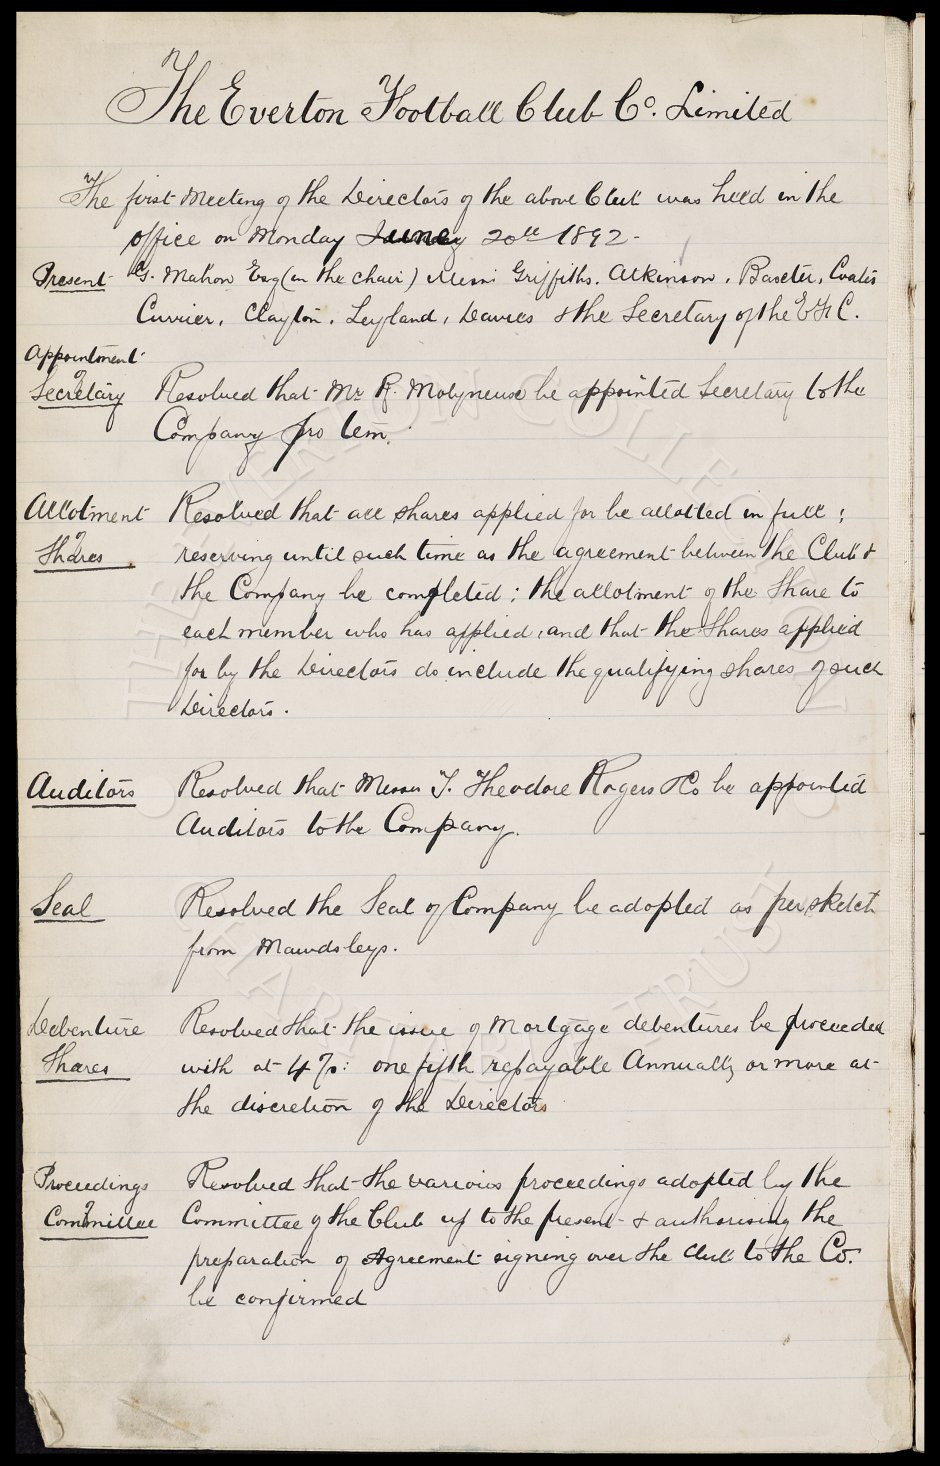 The Everton Football Club Co. Limited
The first Meeting of the Directors of the above Club was held in the
office on Monday June 20th 1892-
Present G. Mahon Esq (in the chair) Messrs Griffiths, Atkinson, Baxter, Coates
Currier, Clayton, Leyland, Davies & the Secretary of the E.F.C.
Appointment
of
Secretary Resolved that Mr R. Molyneux be appointed Secretary to the
Company pro tem.
Allotment Resolved that all shares applied for be allotted in full;
of
Shares reserving until such time as the agreement between the Club &
the Company be completed: the allotment of the Share to
each member who has applied, and that the Shares applied
for by the Directors do include the qualifying shares of such
Directors.
Auditors Resolved that Messrs T. Theodore Rogers & Co be appointed
Auditors to the Company.
Seal Resolved the Seal of Company be adopted as per sketch
from Mawdsleys.
Debenture Resolved that the issue of Mortgage debentures be proceeded
Shares with at 4%: one fifth repayable Annually or more at
the discretion of the Directors
Proceedings Resolved that the various proceedings adopted by the
of
Committee Committee of the Club up to the present & authorising the
preparation of Agreement signing over the Club to the Co.
be confirmed
THE EVERTON COLLECTION
CHARITABLE TRUST